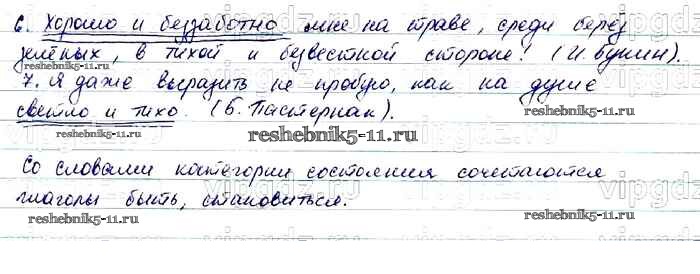 6. Хорошо и беззаботно мне на траве, среди берёз
зелёных, в тихой и безвестной стороне! (И. Бунин).
7. Я даже выразить не пробую, как на душе
светло и тихо. (Б. Пастернак).
reshebnik5-11.ru
reshebnik5-11.ru
Со словами категории состояния сочетаются
глаголы быть, становиться.
reshebnik5-11.ru
reshebnik5-11.ru
vipgdz.ru
vipgdz.ru